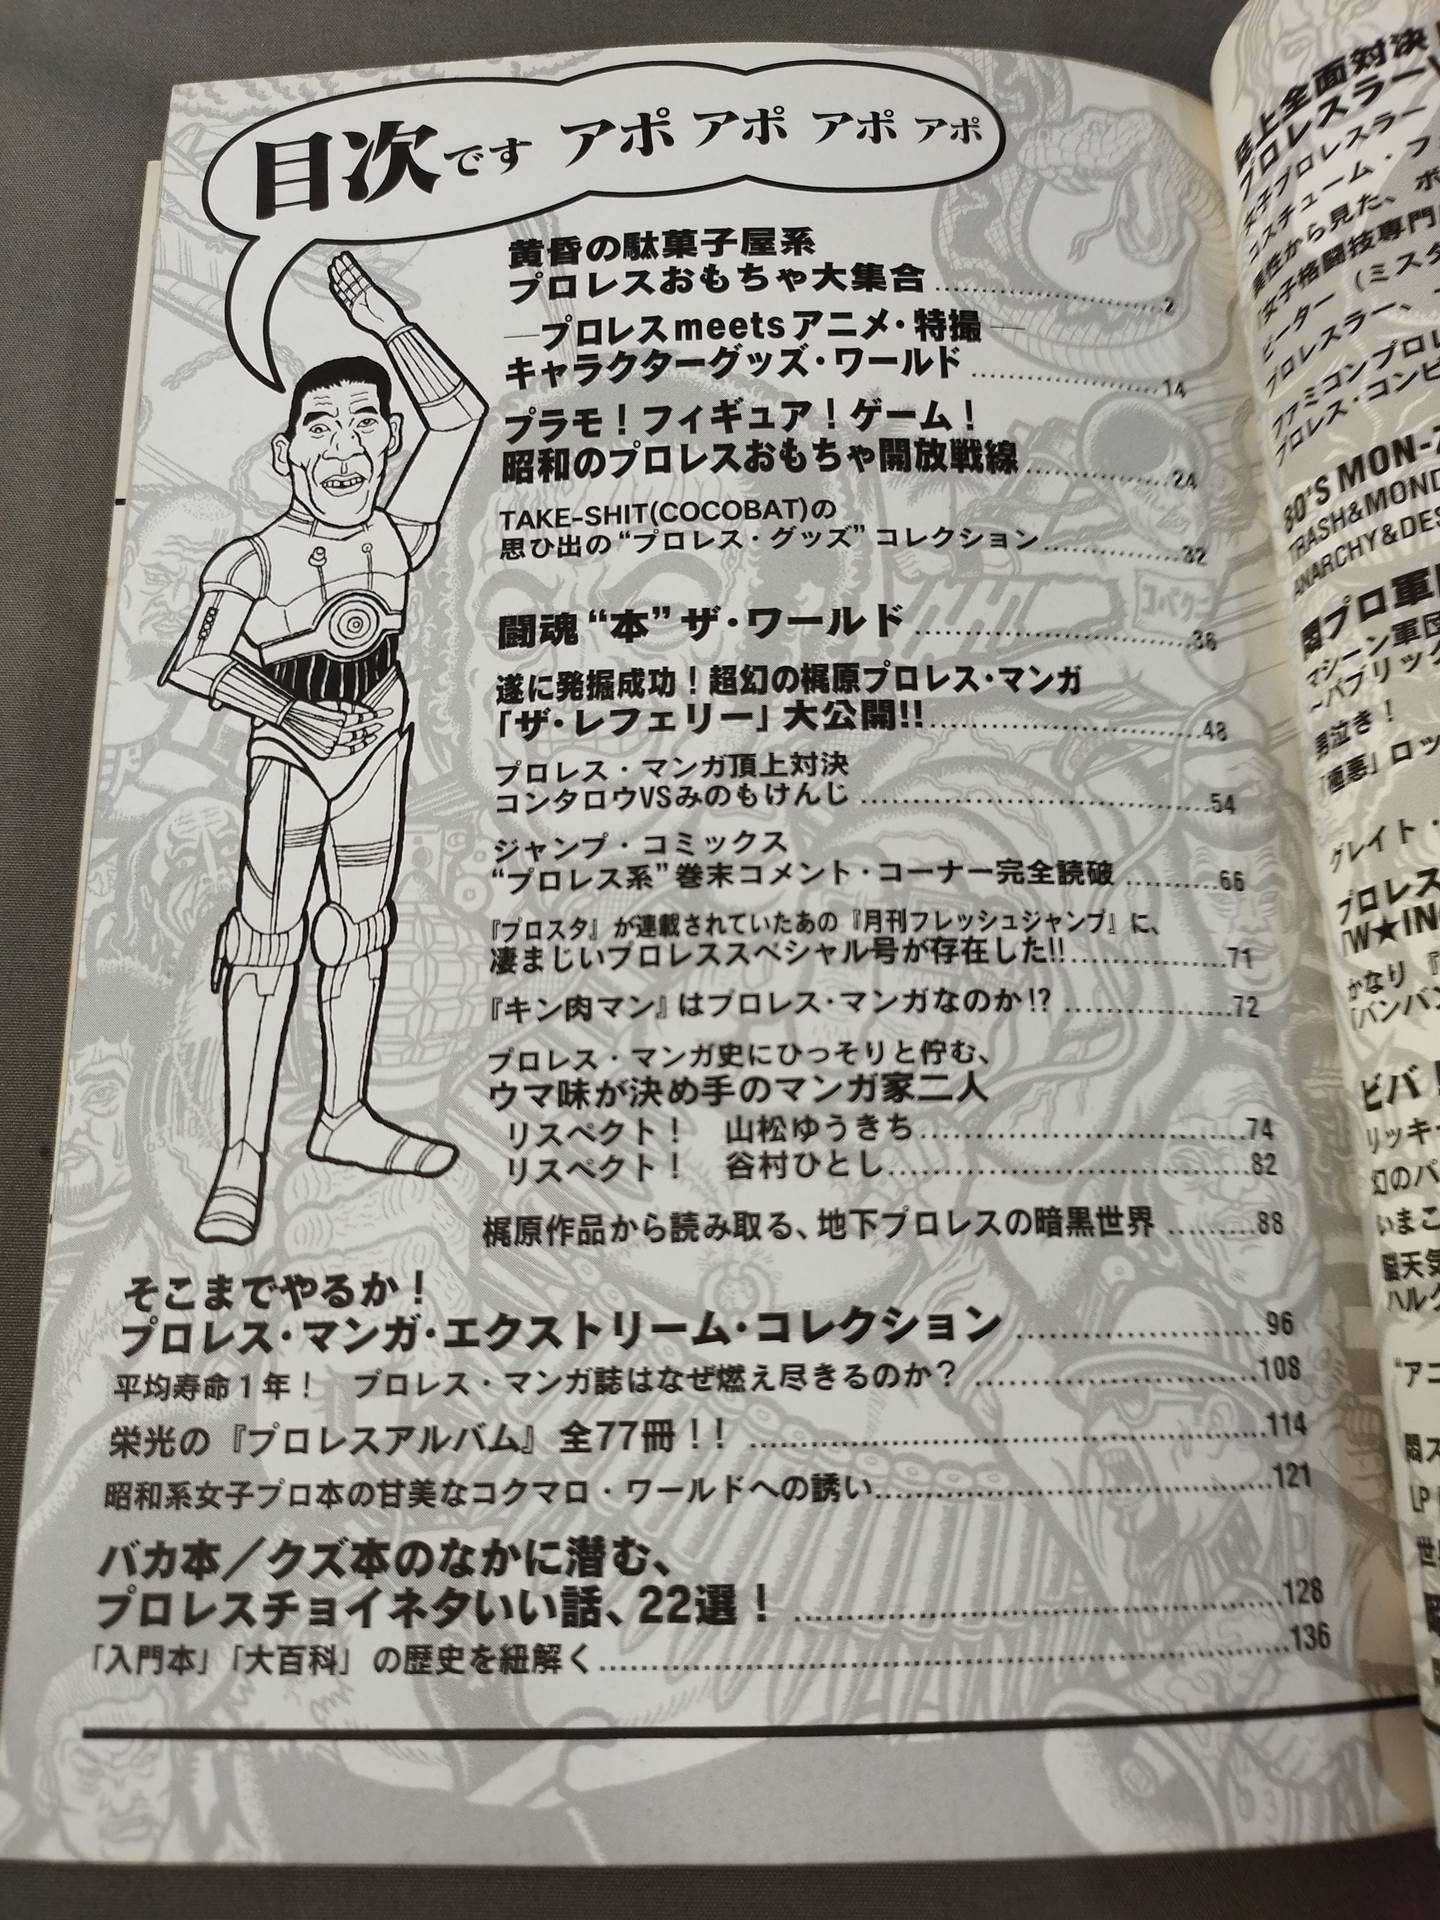 目次です アポ アポ アポ アポ
黄昏の駄菓子屋系
プロレスおもちゃ大集合……………………2
—プロレスmeetsアニメ・特撮—
キャラクターグッズ・ワールド……………………14
プラモ！フィギュア！ゲーム！
昭和のプロレスおもちゃ開放戦線……………………24
TAKE-SHIT(COCOBAT)の
思ひ出の“プロレス・グッズ”コレクション……………………32
闘魂“本”ザ・ワールド……………………36
遂に発掘成功！超幻の梶原プロレス・マンガ
「ザ・レフェリー」大公開!!……………………48
プロレス・マンガ頂上対決
コンタロウVSみのもけんじ……………………54
ジャンプ・コミックス
“プロレス系”巻末コメント・コーナー完全読破…………66
『プロスタ』が連載されていたあの『月刊フレッシュジャンプ』に、
凄まじいプロレススペシャル号が存在した!!……………71
『キン肉マン』はプロレス・マンガなのか!?……………72
プロレス・マンガ史にひっそりと佇む、
ウマ味が決め手のマンガ家二人
リスペクト！　山松ゆうきち……………………74
リスペクト！　谷村ひとし……………………82
梶原作品から読み取る、地下プロレスの暗黒世界…………88
そこまでやるか！
プロレス・マンガ・エクストリーム・コレクション……………………96
平均寿命1年！　プロレス・マンガ誌はなぜ燃え尽きるのか？……………………108
栄光の『プロレスアルバム』全77冊！！……………………114
昭和系女子プロ本の甘美なコクマロ・ワールドへの誘い……………………121
バカ本／クズ本のなかに潜む、
プロレスチョイネタいい話、22選！……………………128
「入門本」「大百科」の歴史を紐解く……………………136
コバクニ
誌上全面対決！
プロレスラーV
女子プロレスラー
コスチューム・フ
異性から見た、ボ
女子格闘技専門
ピーター（ミスタ
プロレスラー、
ファミコンプロレ
プロレス・コンピ
80'S MON-Z
TRASH&MOND
ANARCHY&DES
悶プロ軍団
マシーン軍団
～パブリック
男泣き！
「極悪」ロッ
グレイト・
プロレス
「W★ING
かなり『
「バンバン
ビバ！
リッキー
幻のパ
いまこ
脳天気
ハルク
“アニ
悶ス
LP
世
昭